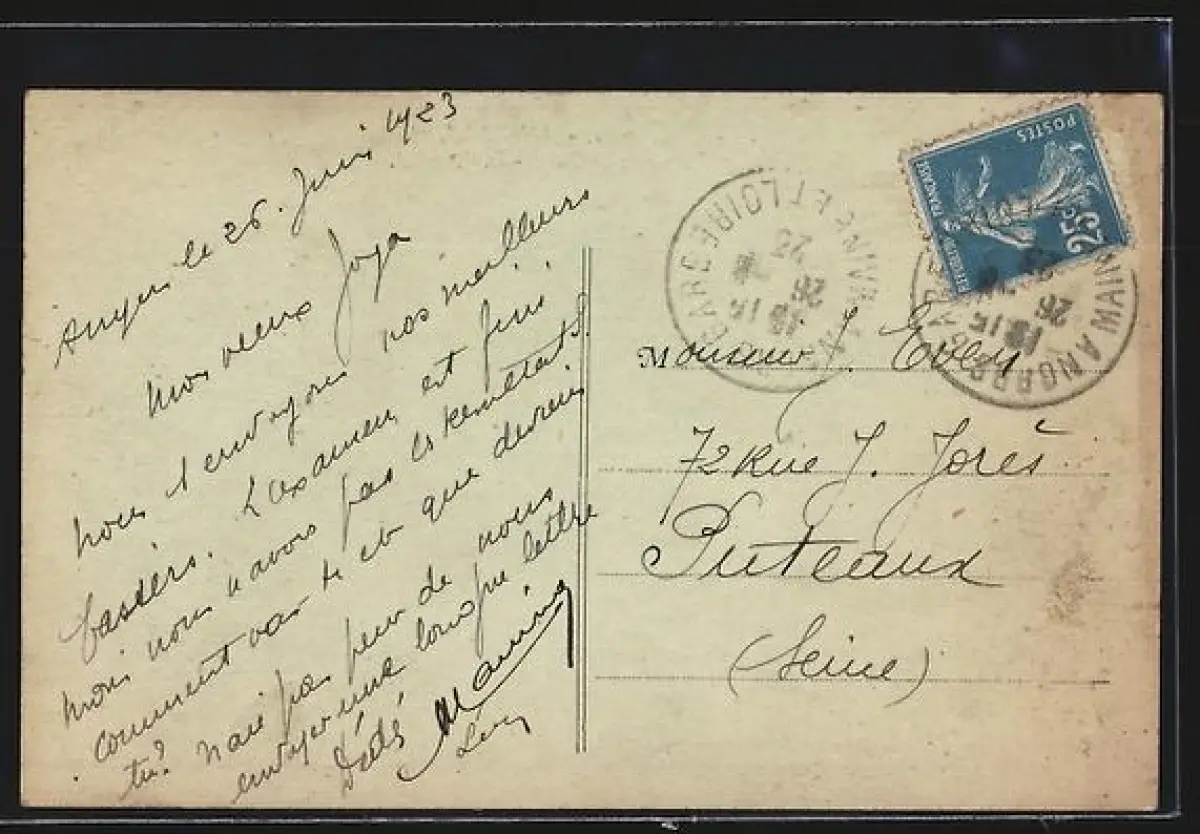 Angers le 26. Juin 1923
Mon vieux Jojo
Nous t'envoyons nos meilleurs
baisers. L'examen est fini
mais nous n'avons pas les resultats.
comment vas tu et que deviens
tu? N'aie pas peur de nous
envoyer une longue lettre
Dédé
Monsieur J.
72 Rue J. Jorès
Puteaux
(Seine)
POSTES
25c
MAINE ET LOIRE
ANGERS GARE
18 15
26
23
ANGERS GARE
MAINE
18 15
26